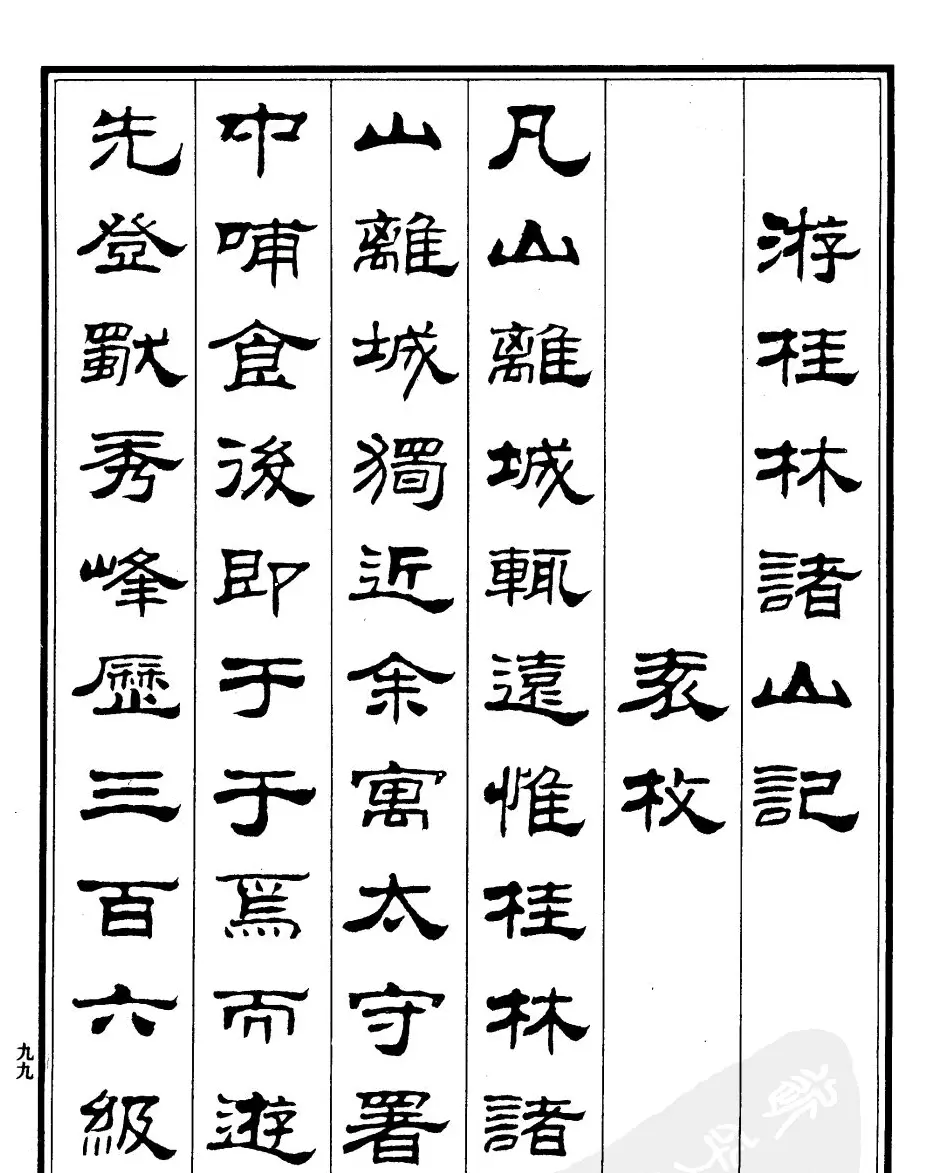 游桂林諸山記
袁枚
凡山離城輒遠惟桂林諸
山離城獨近余寓太守署
中哺食後即于于焉而遊
先登獨秀峰歷三百六級
九九